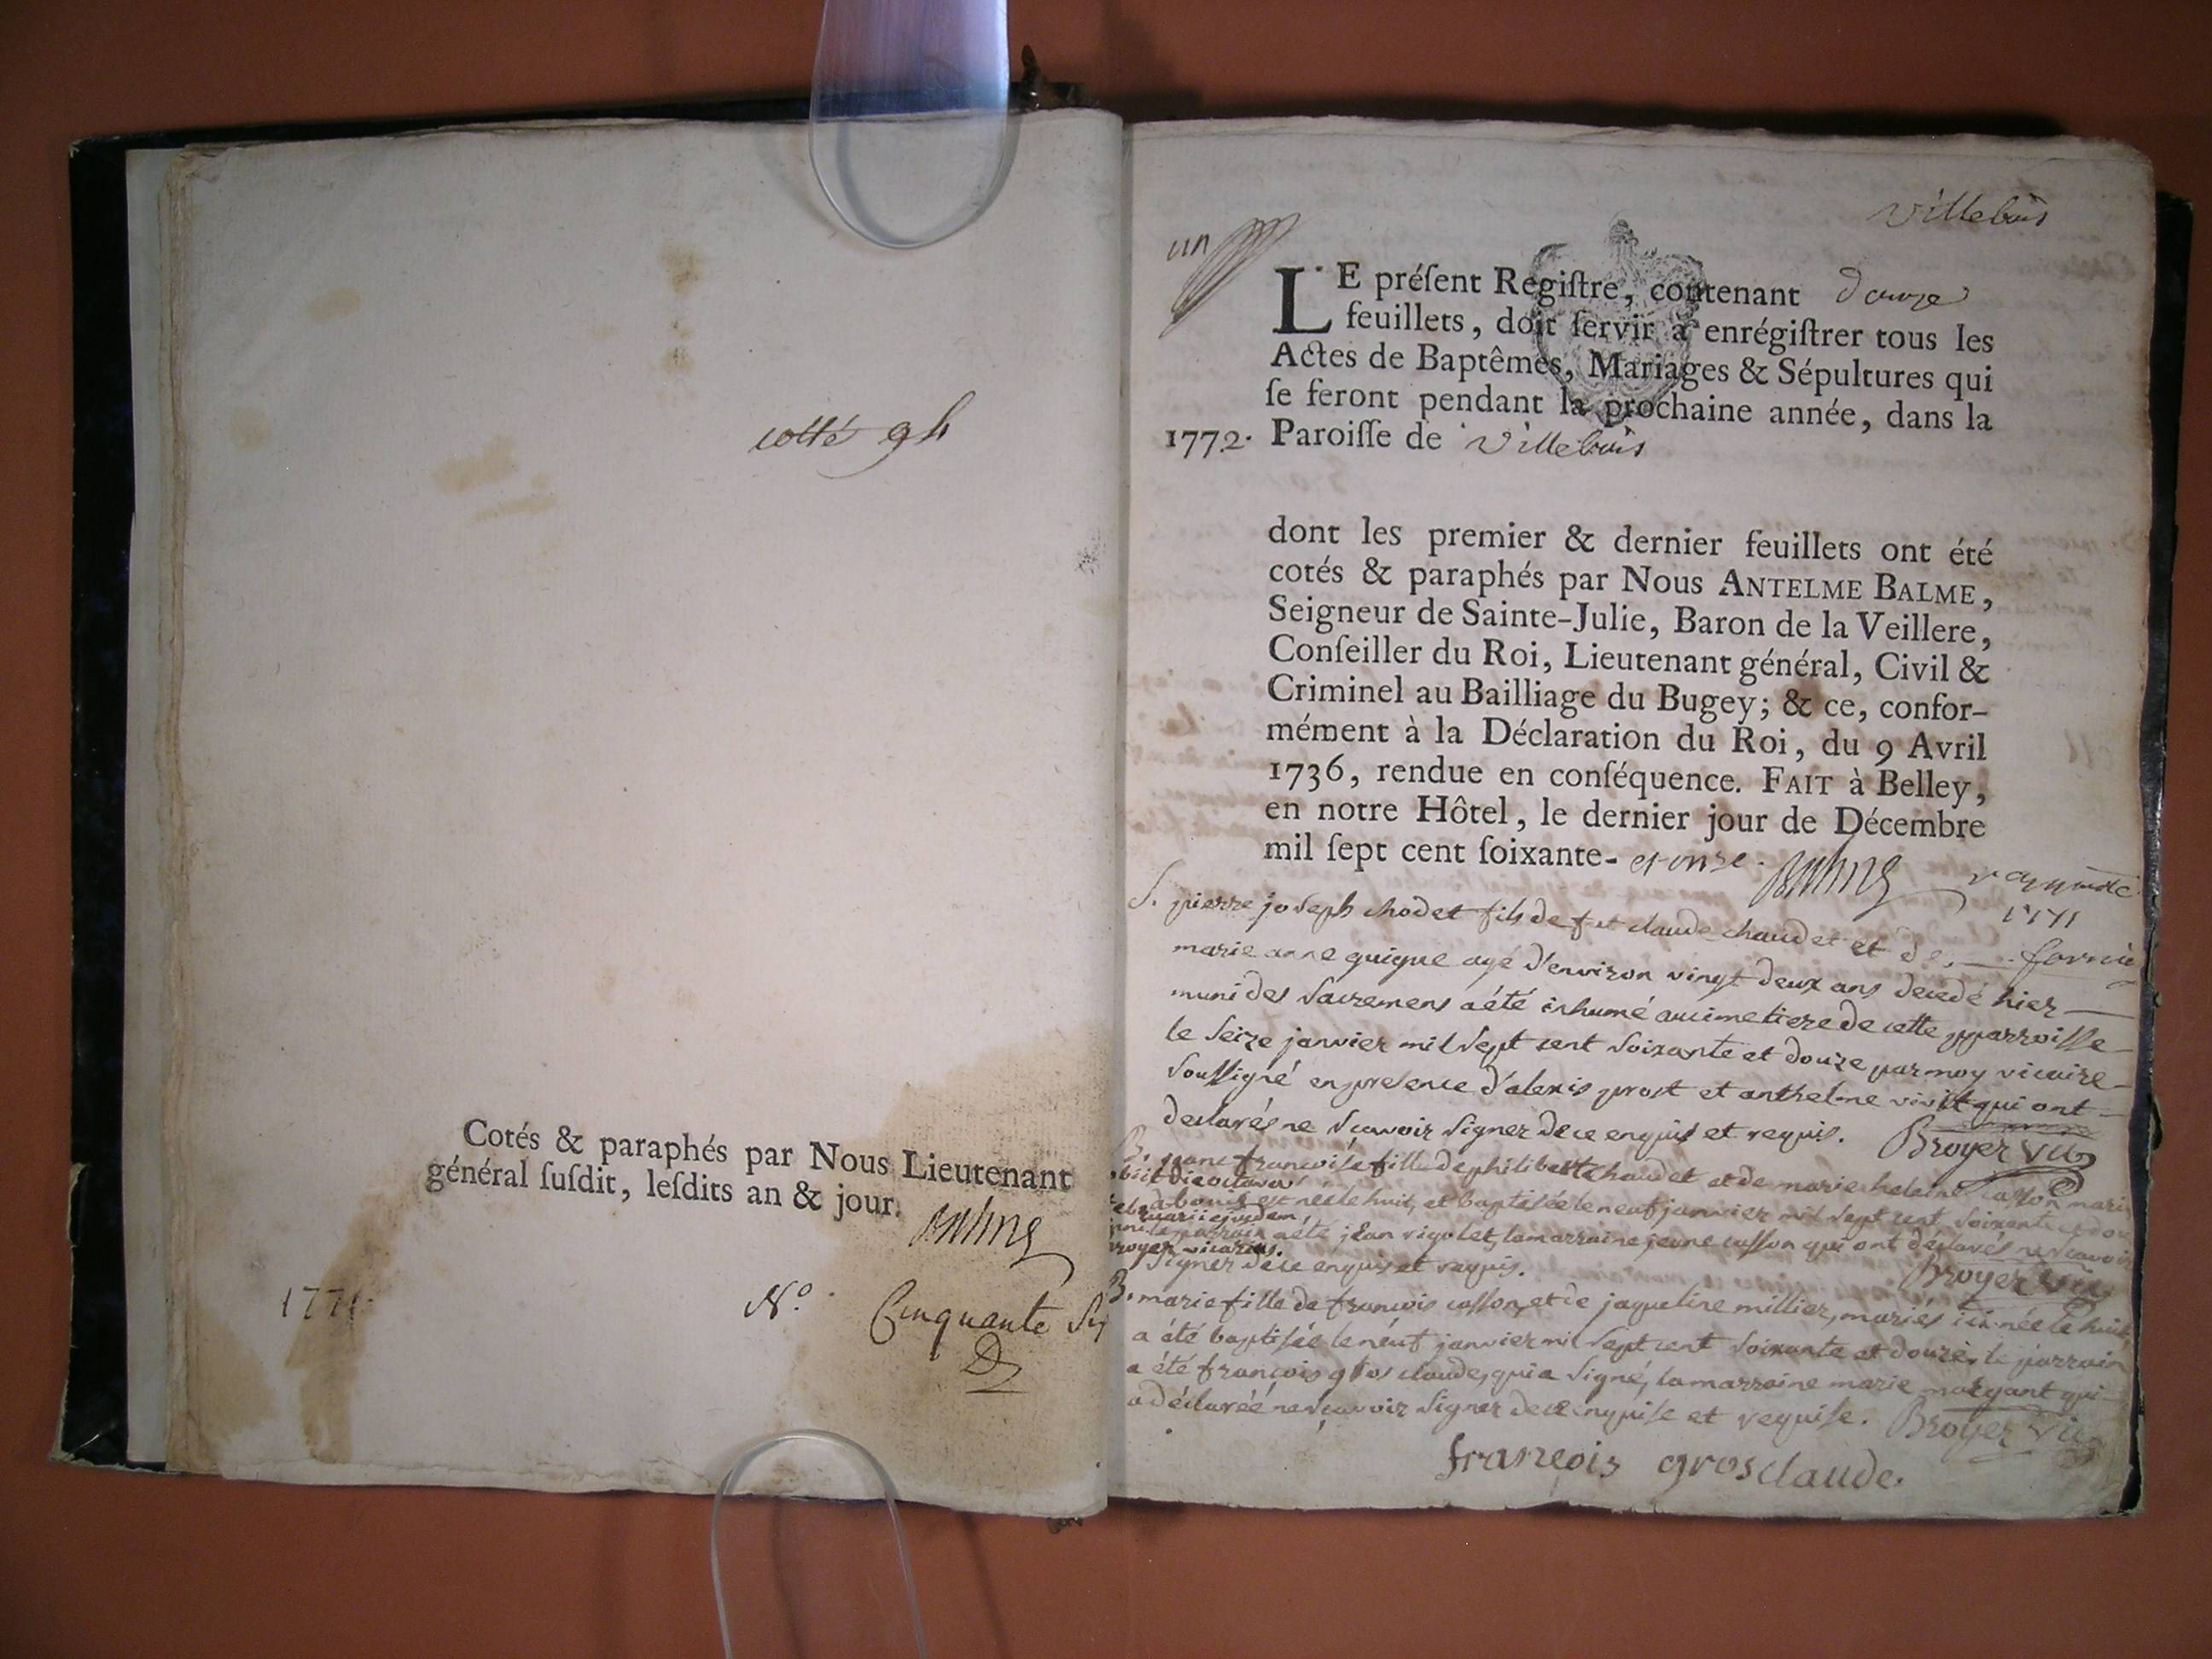 cotté 9h
Cotés & paraphés par Nous Lieutenant
général ſuſdit, leſdits an & jour.
Balme
1771.
N.o Cinquante
villebois
un
LE préſent Regiſtre, contenant douze
feuillets, doit ſervir à enrégiſtrer tous les
Actes de Baptêmes, Mariages & Sépultures qui
ſe feront pendant la prochaine année, dans la
1772. Paroiſſe de villebois
dont les premier & dernier feuillets ont été
cotés & paraphés par Nous ANTELME BALME,
Seigneur de Sainte-Julie, Baron de la Veillere,
Conſeiller du Roi, Lieutenant général, Civil &
Criminel au Bailliage du Bugey; & ce, confor-
mément à la Déclaration du Roi, du 9 Avril
1736, rendue en conſéquence. FAIT à Belley,
en notre Hôtel, le dernier jour de Décembre
mil ſept cent ſoixante- et onze. Balme
1771
S. pierre joseph chodet fils de fut claude chaudet et de
marie anne guigue agé d'environ vingt deux ans decedé hier
muni des sacremens a été inhumé au cimetiere de cette parroisse
le seize janvier mil sept cent soixante et douze par moy vicaire
soussigné en presence d'alexis prost et anthelme qui ont
declarés ne scavoir signer de ce enquis et requis. Broyer vic
B. jeane francoise fille de philibert chaudet et de marie helaine casson mariés
obiit die octava
est née le huit, et baptisée le neuf janvier mil sept cent soixante et dou
marii ejusdem
le parrain a été jean rigolet, la marraine jeane casson qui ont déclarés ne scavoir
broyer vicarius.
signer de ce enquis et requis. Broyer vic
B. marie fille de francois casson, et de jaqueline millier, mariés ici née le huit
a été baptisée le neuf janvier mil sept cent soixante et douze, le parrain
a été francois gros claude, qui a signé, la marraine marie morgant qui
a déclarée ne scavoir signer de ce enquise et requise. Broyer vic
francois grosclaude.